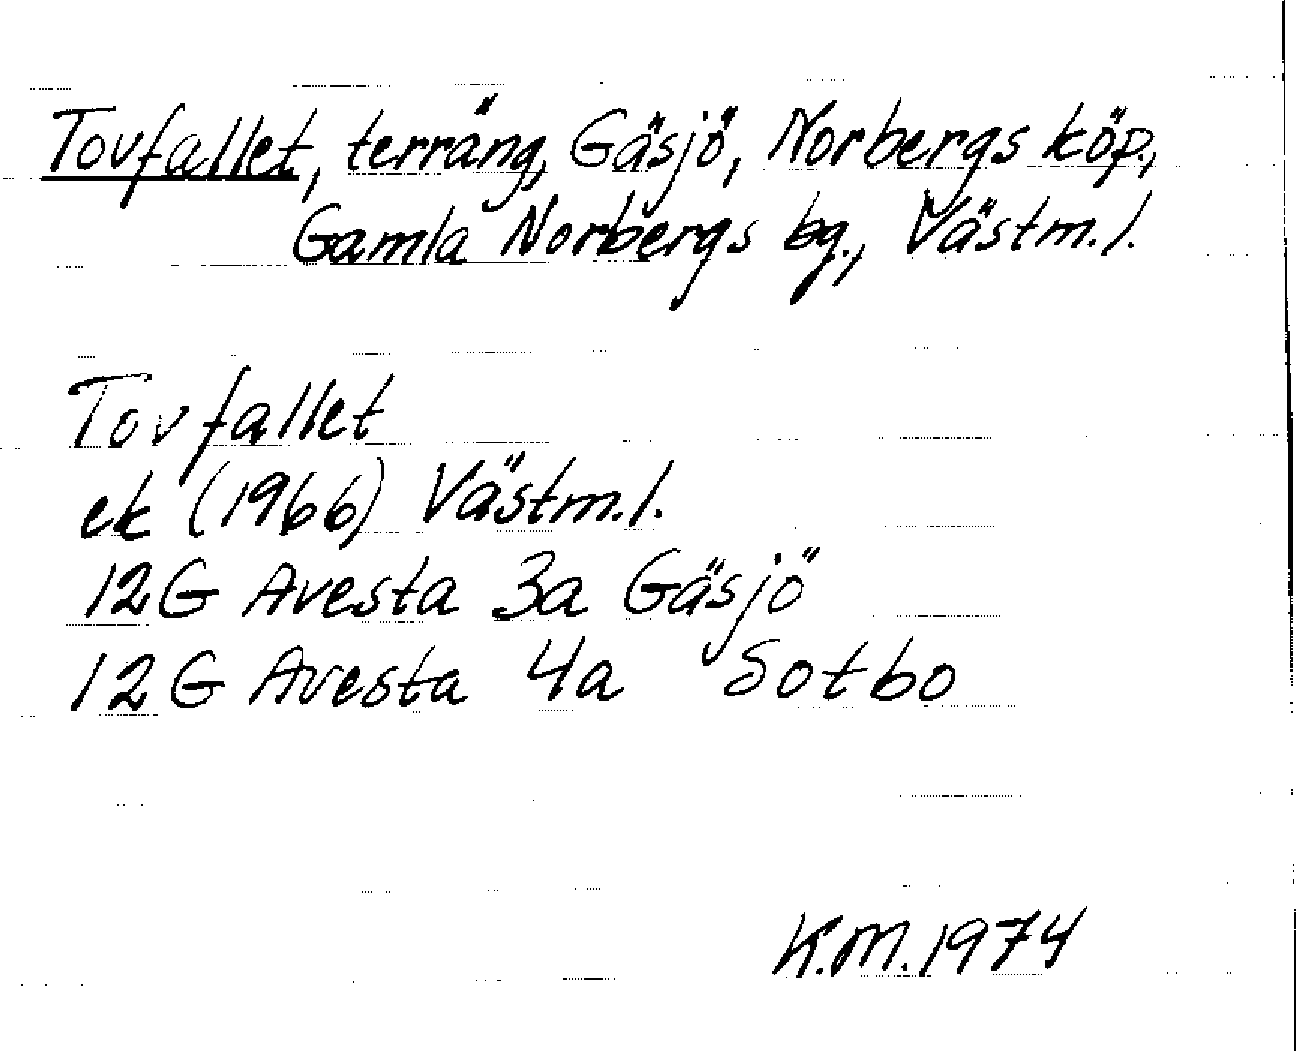 Tovfallet, terräng, Gäsjö, Norbergs köp.,
Gamla Norbergs bg., Västm.l.
Tovfallet
ek (1966) Västm.l.
12G Avesta 3a Gäsjö
12G Avesta 4a Sotbo
K.M.1974